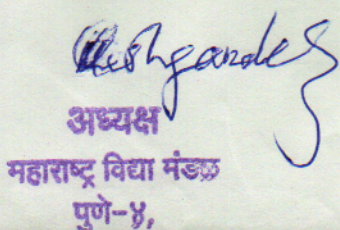 अध्यक्ष
महाराष्ट्र विद्या मंडळ
पुणे-४,